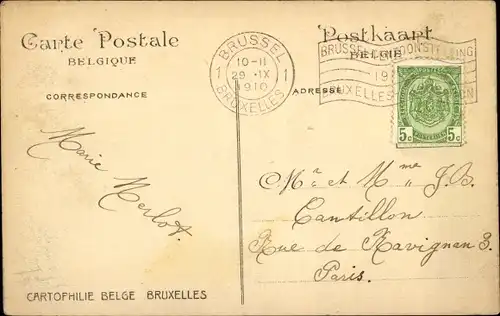 Carte Postale
BELGIQUE
CORRESPONDANCE
Postkaart
BELGIE
ADRESSE
BRUSSEL
10-11
1 29 IX 1
1910
BRUXELLES
BRUSSEL
BRUXELLES
5c 5c
Marie Merlot.
Mr et Mme J.B.
Cantillon
Rue de Ravignan 3.
Paris.
CARTOPHILIE BELGE BRUXELLES